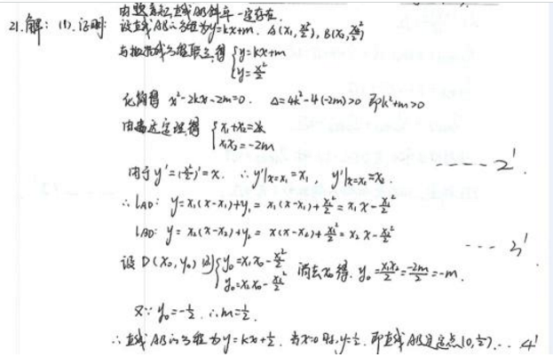 由题意知直线AB斜率一定存在.
21.解: (1).证明: 设直线AB的方程为y=kx+m. A(x₁,x₁²/2), B(x₂,x₂²/2)
与抛物线方程联立得 {y=kx+m
y=x²/2
化简得 x²-2kx-2m=0. Δ=4k²-4(-2m)>0 即k²+m>0
由韦达定理得 {x₁+x₂=2k
x₁x₂=-2m
由于y'=(x²/2)'=x. ∴y'|x=x₁=x₁, y'|x=x₂=x₂. ----- 2'
∴lAD: y=x₁(x-x₁)+y₁=x₁(x-x₁)+x₁²/2=x₁x-x₁²/2
lBD: y=x₂(x-x₂)+y₂=x(x-x₂)+x₂²/2=x₂x-x₂²/2 --- 3'
设D(x₀,y₀) 则{y₀=x₁x₀-x₁²/2
y₀=x₂x₀-x₂²/2 消去x₀得. y₀=x₁x₂/2=-2m/2=-m.
又∵y₀=-1/2. ∴m=1/2.
∴直线AB的方程为y=kx+1/2. 当x=0时,y=1/2. 即直线AB过定点(0,1/2)... 4'